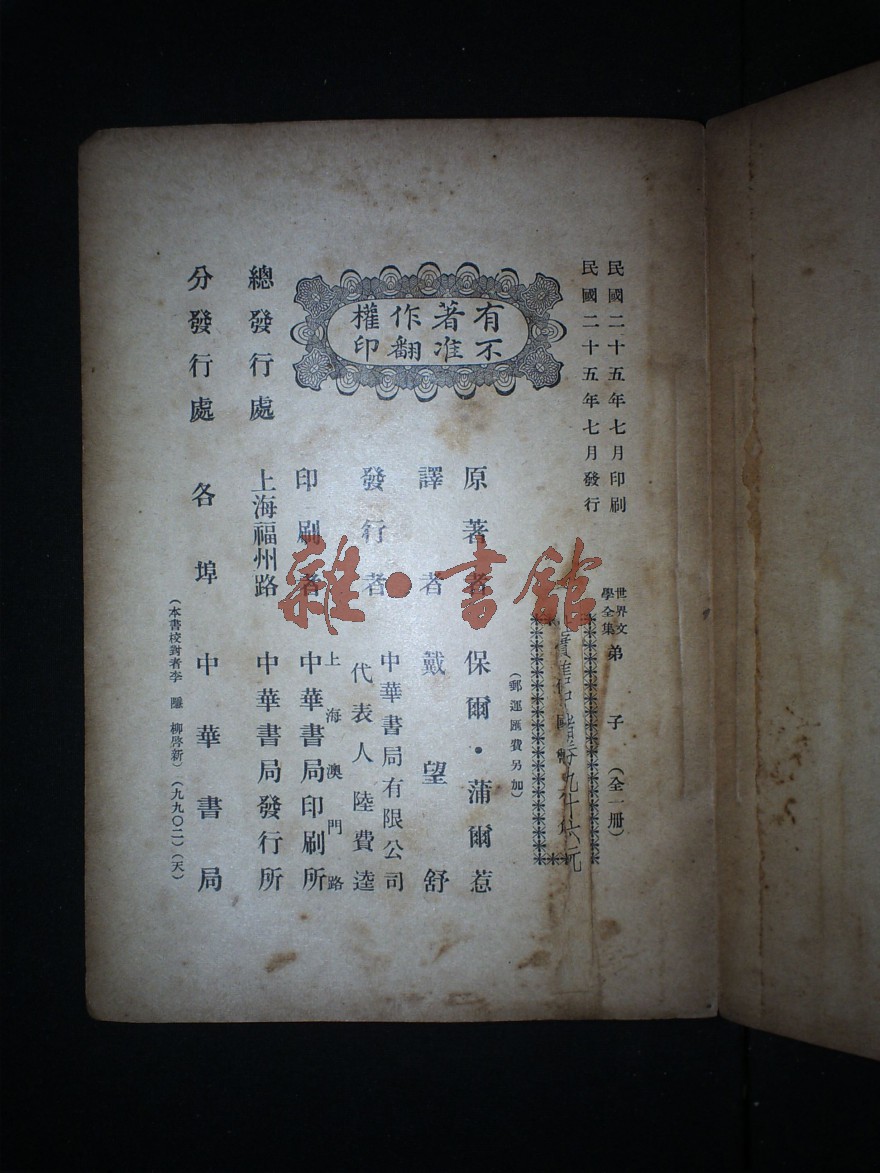 民國二十五年七月印刷
民國二十五年七月發行
世界文學全集 弟子 (全一册)
(郵運匯費另加)
有著作權
不准翻印
原著者 保爾·蒲爾惹
譯者 戴望舒
發行者 中華書局有限公司
代表人 陸費逵
印刷者 上海澳門路
中華書局印刷所
總發行處 上海福州路 中華書局發行所
分發行處 各埠中華書局
(本書校對者李 柳啓新)(九九〇二)(天)
雜·書館